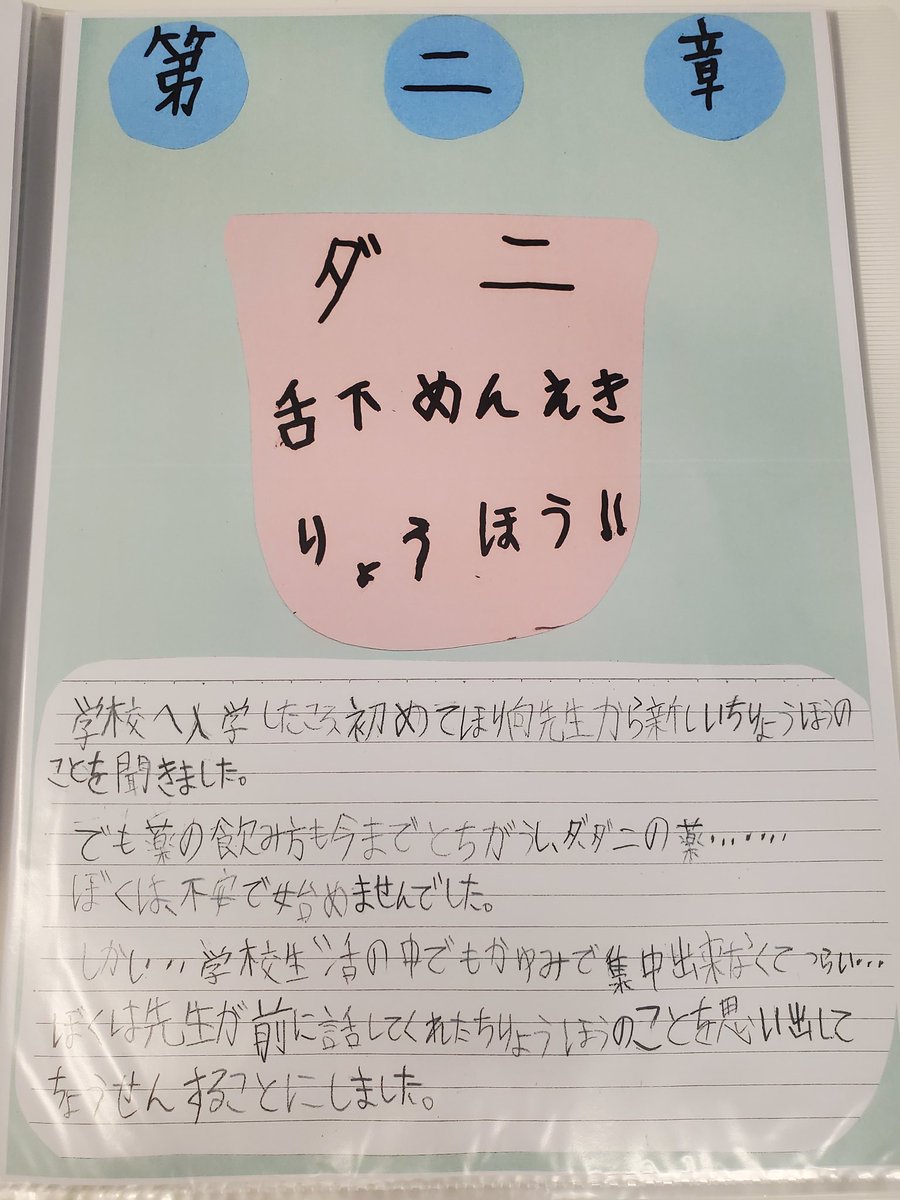 第二章
ダニ
舌下めんえき
りょうほう!!
学校へ入学したころ初めてほり向先生から新しいちりょうほうの
ことを聞きました。
でも薬の飲み方も今までとちがうし、ダ、ダニの薬・・・・・・・
ぼくは、不安で始めませんでした。
しかし・・・学校生活の中でもかゆみで集中出来なくてつらい・・・
ぼくは先生が前に話してくれたちりょうほうのことを思い出して
ちょうせんすることにしました。